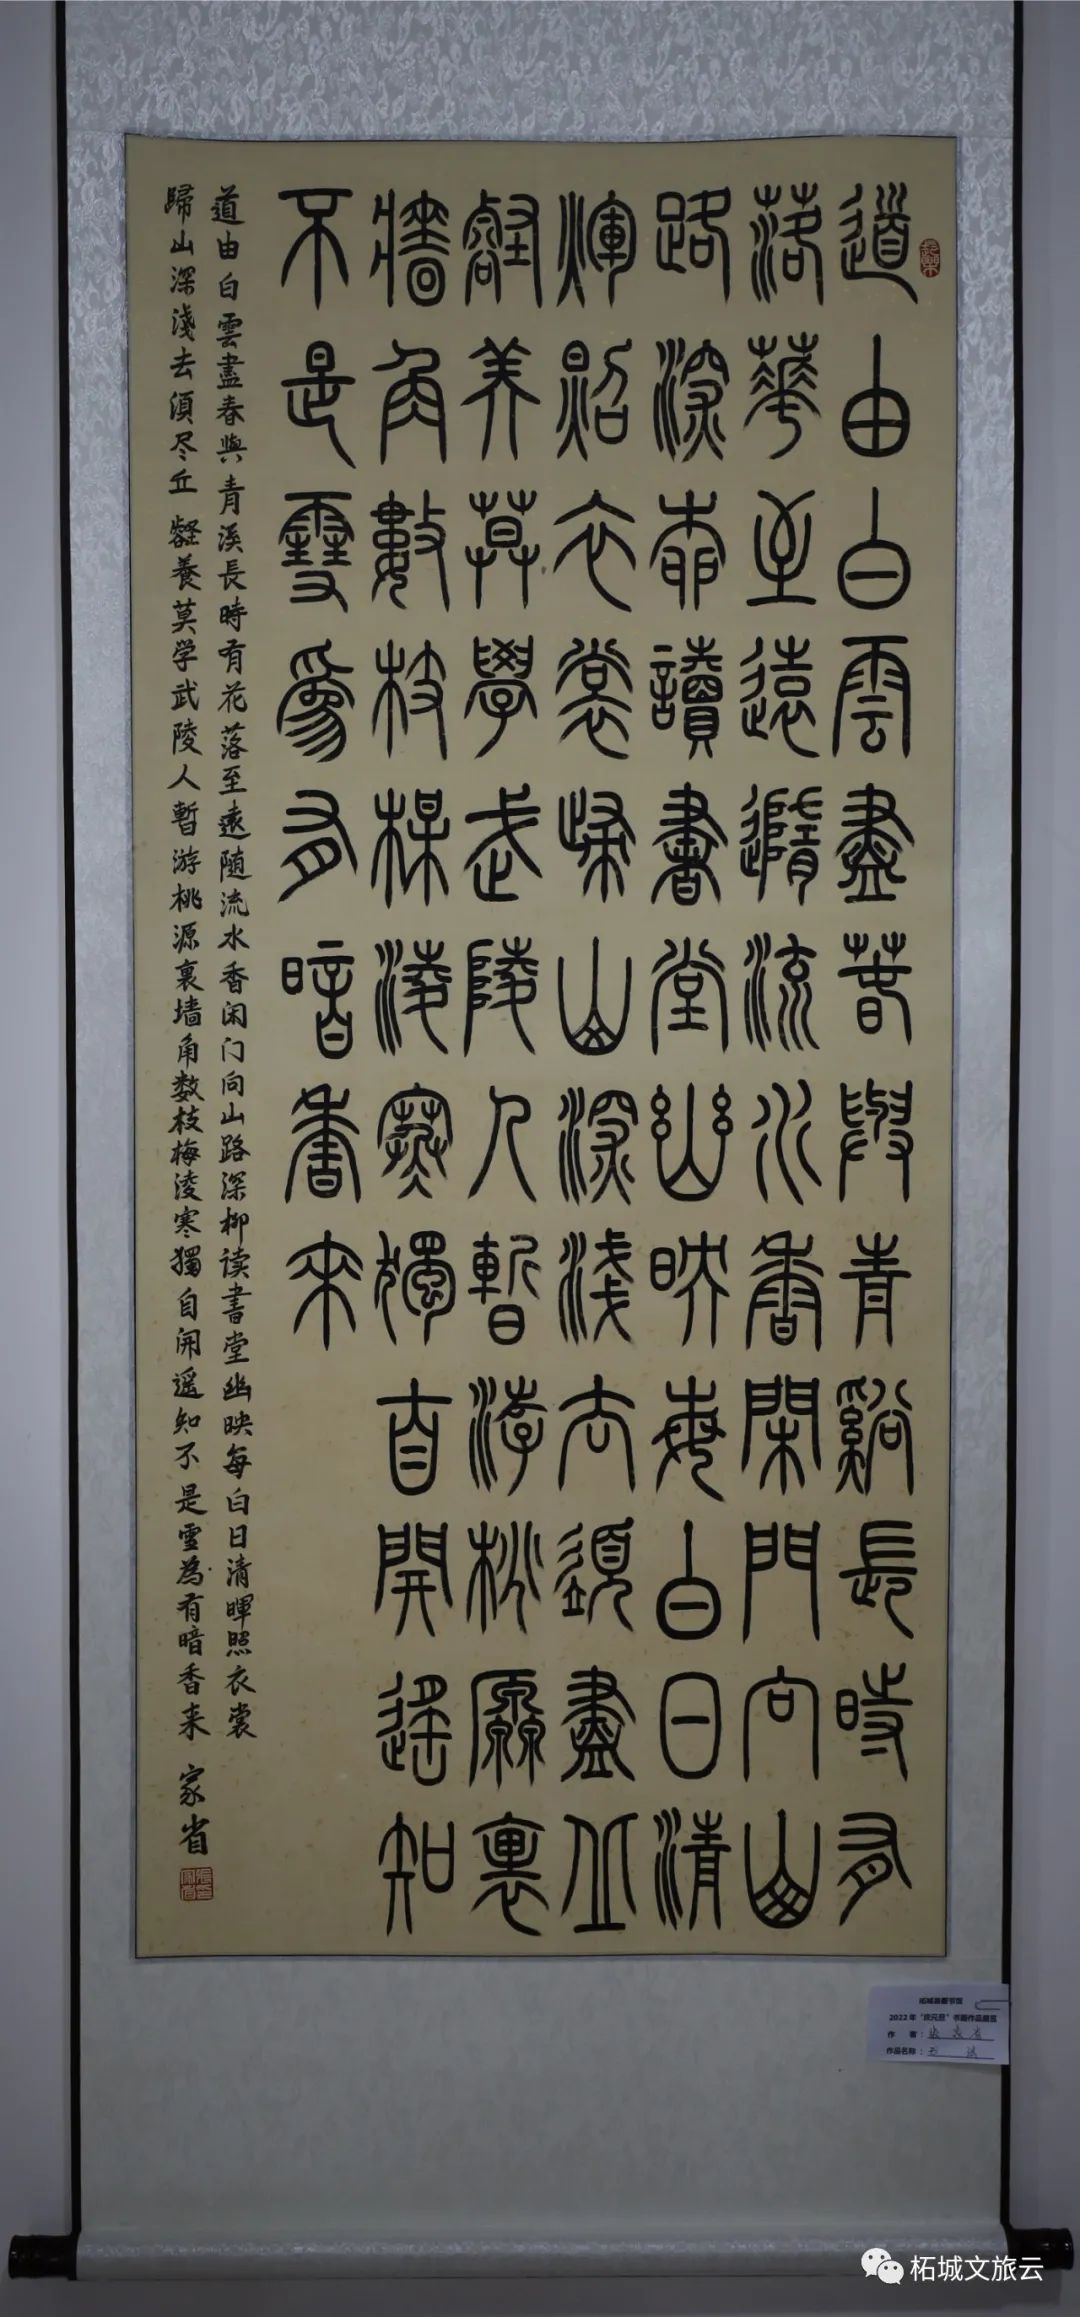 道由白雲盡春與青谿長時有
落華至遠隨流水香閑門向山
路深柳讀書堂幽映每白日清
煇照衣裳歸山深淺去須盡丘
壑美莫學武陵人暫游桃源裏
牆角數枝梅淩寒獨自開遙知
不是雪爲有暗香來
道由白雲盡春與青溪長時有花落至遠随流水香闲门向山路深柳读書堂幽映每白日清暉照衣裳
歸山深淺去須尽丘壑養莫学武陵人暫游桃源裏墙角数枝梅淩寒獨自開遥知不是雪為有暗香来 家省
柘城县图书馆
2022年“庆元旦”书画作品展览
作 者：张家省
作品名称：
柘城文旅云